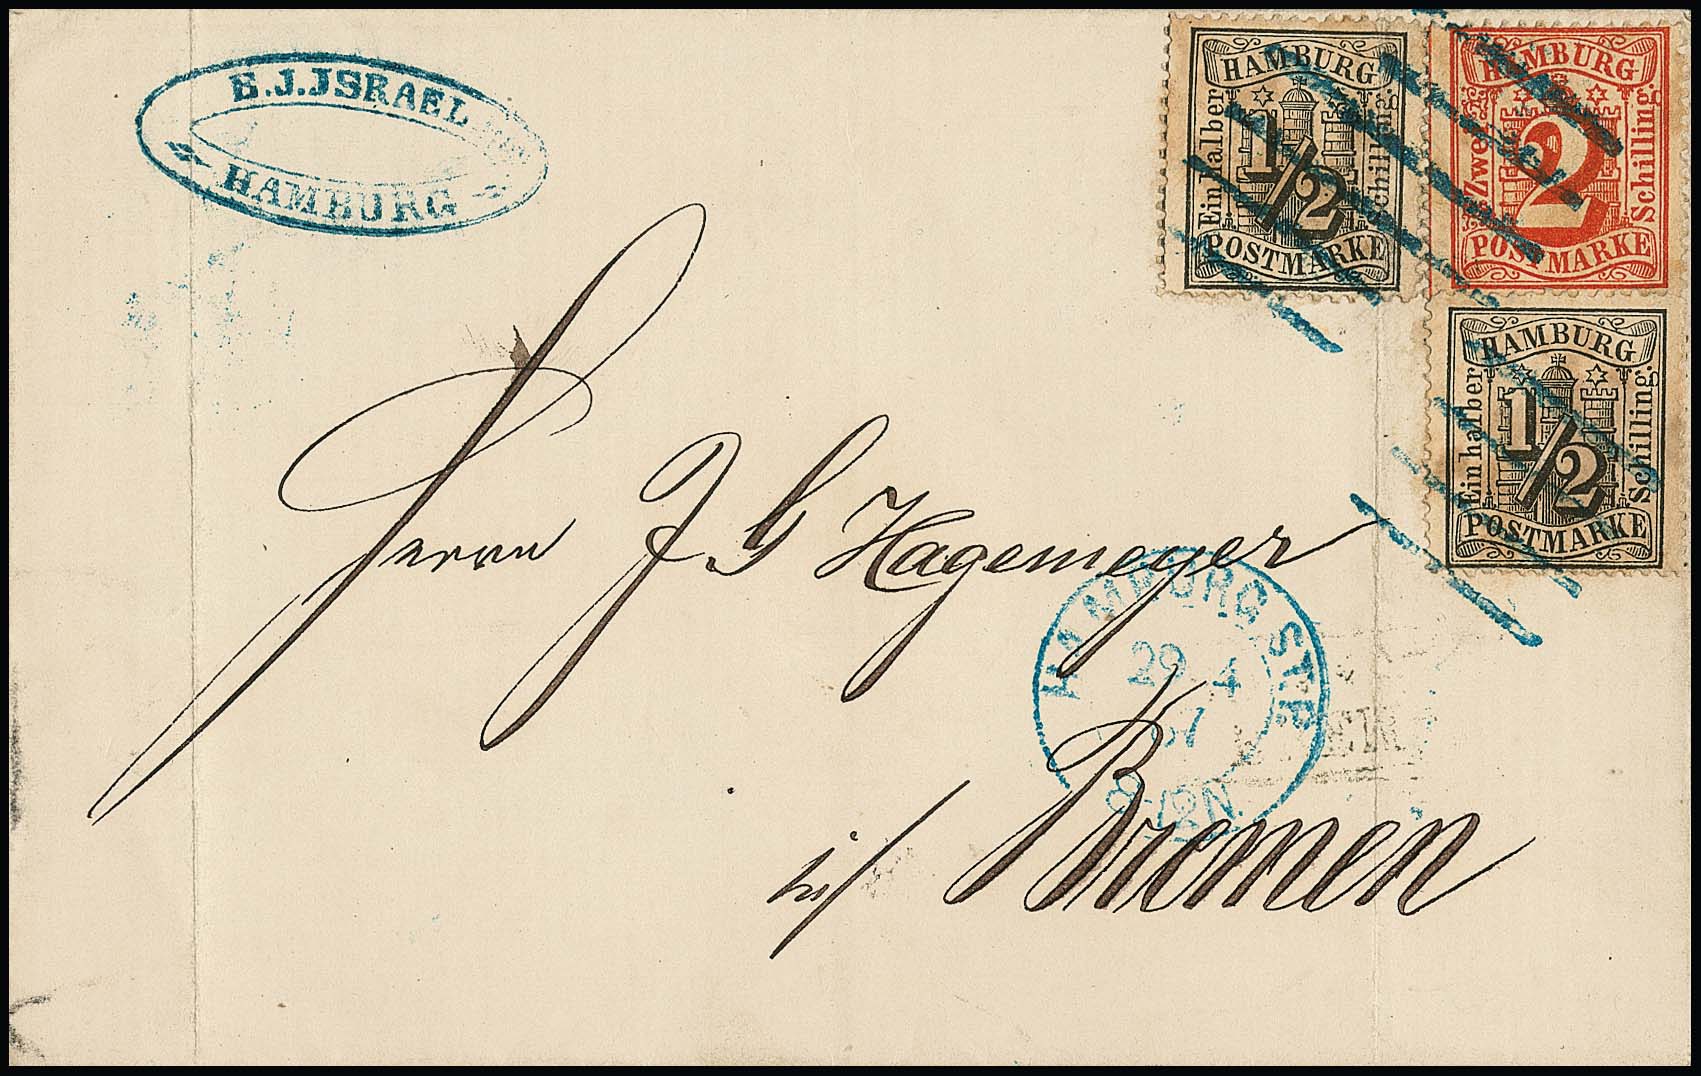 E.J.JSRAEL
HAMBURG
HAMBURG
Einhalber
1/2
Schilling.
POSTMARKE
HAMBURG
Zwei
2
Schilling.
POSTMARKE
HAMBURG
Einhalber
1/2
Schilling.
POSTMARKE
Herrn J G Hagemeyer
HAMBURG ST.P.
29 4
67
in/ Bremen